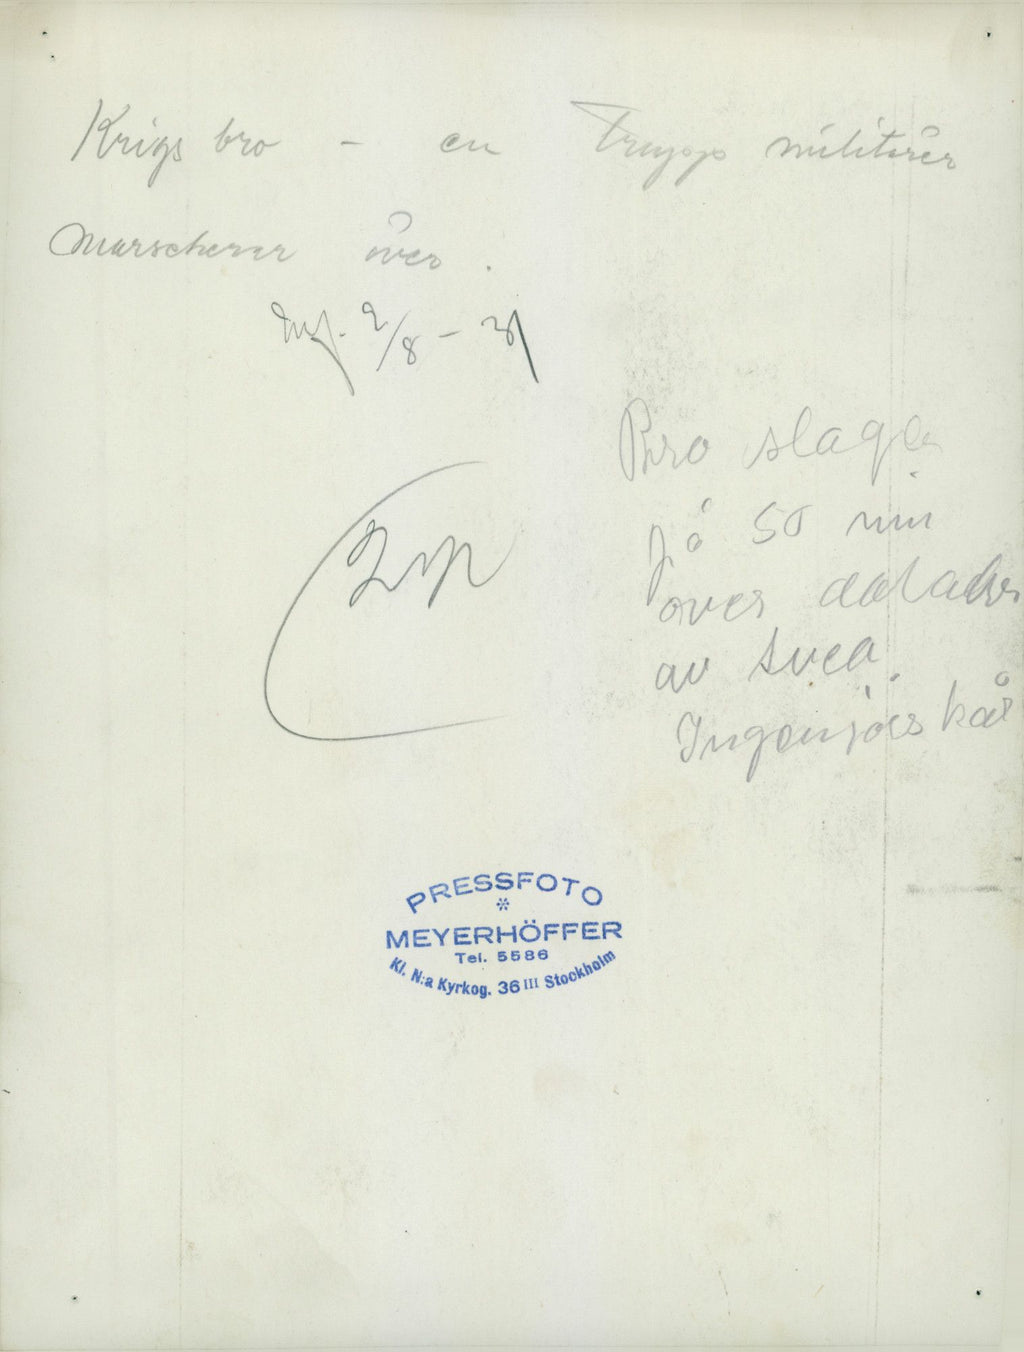 Krigs bro - en Trupp militärer
marscherar över.
Inf. 2/8 - 31
Bro slagen
på 50 min
över dalalven
av Svea
Ingenjörs kår
PRESSFOTO
MEYERHÖFFER
Tel. 5586
Kl. N:a Kyrkog. 36 III Stockholm